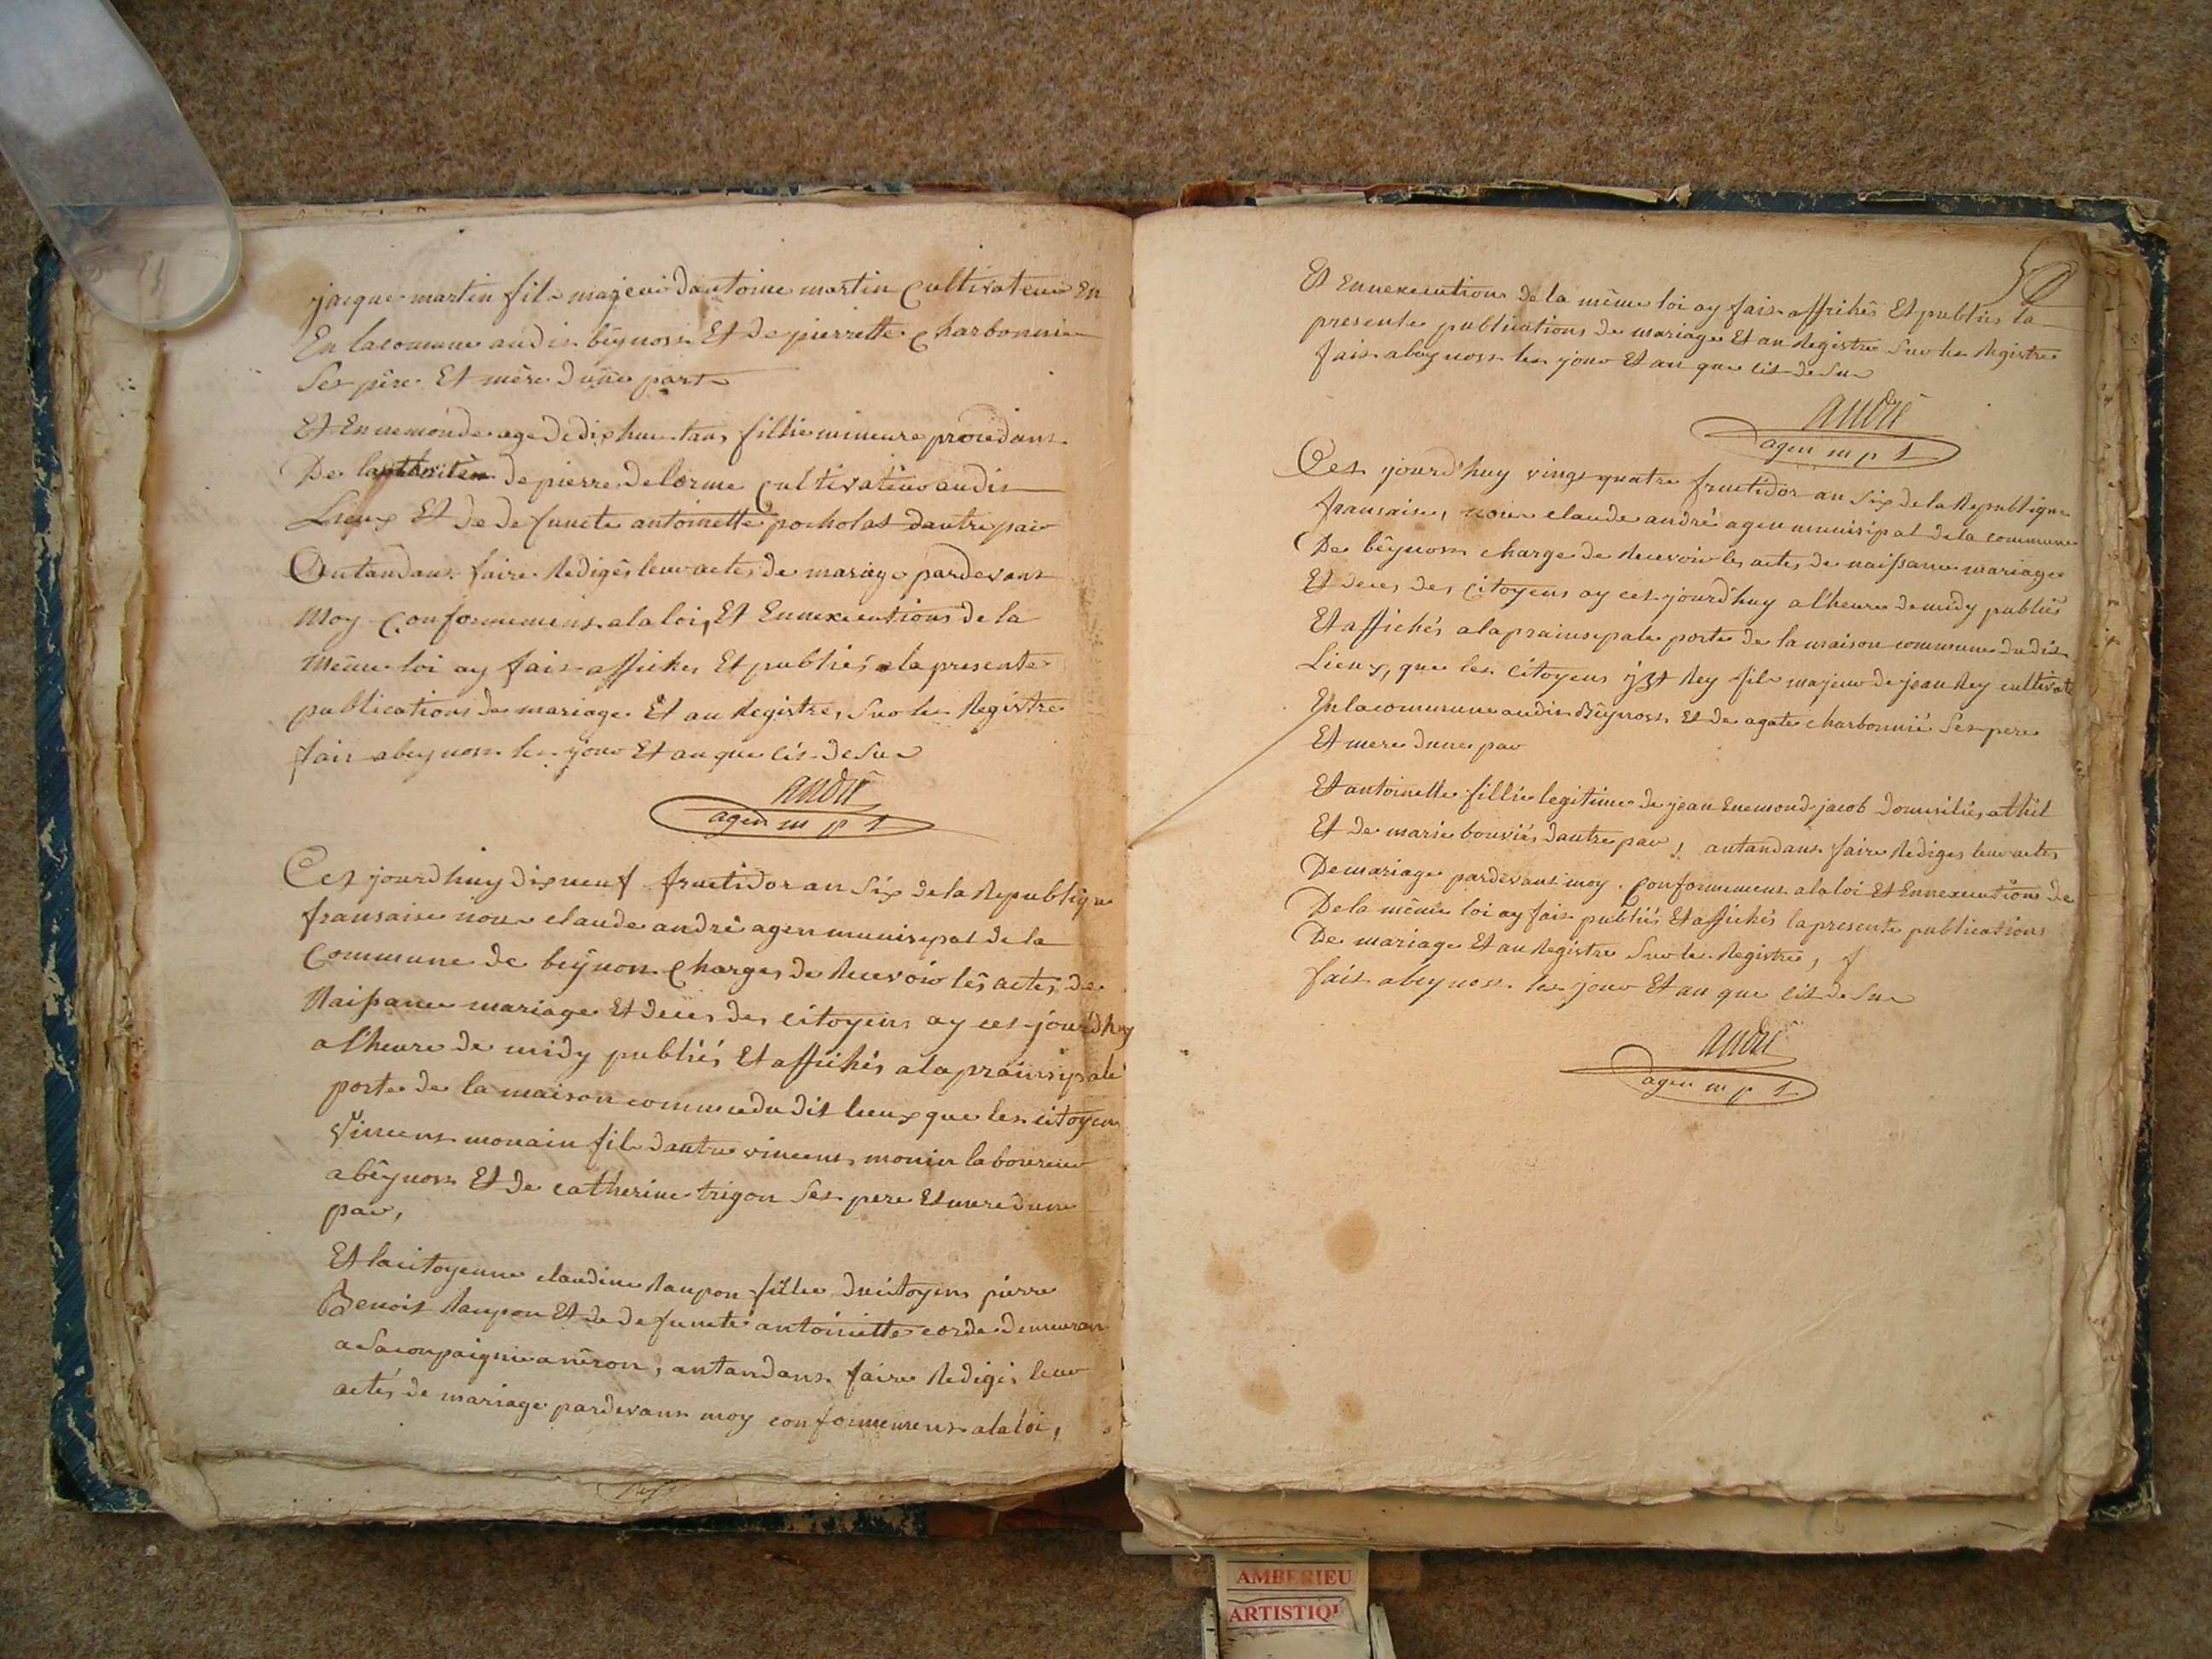 jacque martin fils majeur dantoine martin Cultivateur En
En lacomune audit beÿnost Et de pierrette Charbonnier
Ses père Et mère dune part
Et Ennemonde age de dix huitans filhe mineure procedant
De lauthoriter de pierre delorme Cultivateur audit
Lieux Et de defuncte antoinette pocholat dautre par
antandant faire Redigés leur actes de mariage pardevant
Moy Conformement ala loi, Et Ennexecutions de la
Même loi ay fait affiches Et publiés la presente
publications de mariage Et au Registre, Sur les Registre
fait abeynost les jour Et an que cit de Sur
andré
agen m p l
Cet jourdhuy dixneuf fructidor an Six dela Republique
fransaise nous claude andré agen munisipal de la
Commune de beÿnost Charges de Recevoir lês actes de
Naissance mariage Et deces des citoyens ay cet jourdhuy
alheure de midy publiés Et affichés ala prainsipale
porte de la maison commune du dit lieux que les citoyens
Vincent monain fils dautre vincent monin laboureur
abêynost Et de catherine trigon Ses pere Et mere dune
par,
Et lacitoyenne claudine Raupon fillie ducitoyens pierre
Benoit Raupon Et de defuncte antoinette corde demeurant
a Sacompaignie anéron, antandant faire Redigés leur
actés de mariage pardevant moy conformement ala loi,
50
Et Ennexecutions de la même loi ay fait affichés Et publiés la
presente publications de mariage Et au Registre Sur les Registre
fait abeynost les jour Et an que cit de Sur
andré
agen m p l
Cet jourd'huy vingt quatre fructidor an Six de la Republique
fransaise, nous claude andré agen munisipal dela commune
De bêynost charge de Recevoir les actes de naissance mariage
Et deces des Citoyens ay cet jourd'huy alheure de midy publiés
Et affichés ala prainsipale porte de la maison commune du dit
Lieux, que les Citoyens Rey fils majeur de jean Rey cultivate
En lacommune audit Bêynost Et de agate charbonnié Ses pere
Et mere dune par
Et antoinette fillie legitime de jean Enemond jacob domisiliés athil
Et de marie bouviés dautre par, antandant faire Rediges leur actes
De mariage pardevant moy. Conformement ala loi Et Ennexecutions de
De la même loi ay fait publiés Et affichés lapresente publications
De mariage Et au Registre Sur les Registre, f
fait abeynost les jour Et an que cit de Sur
andré
agen m p l
AMBERIEU
ARTISTIQ